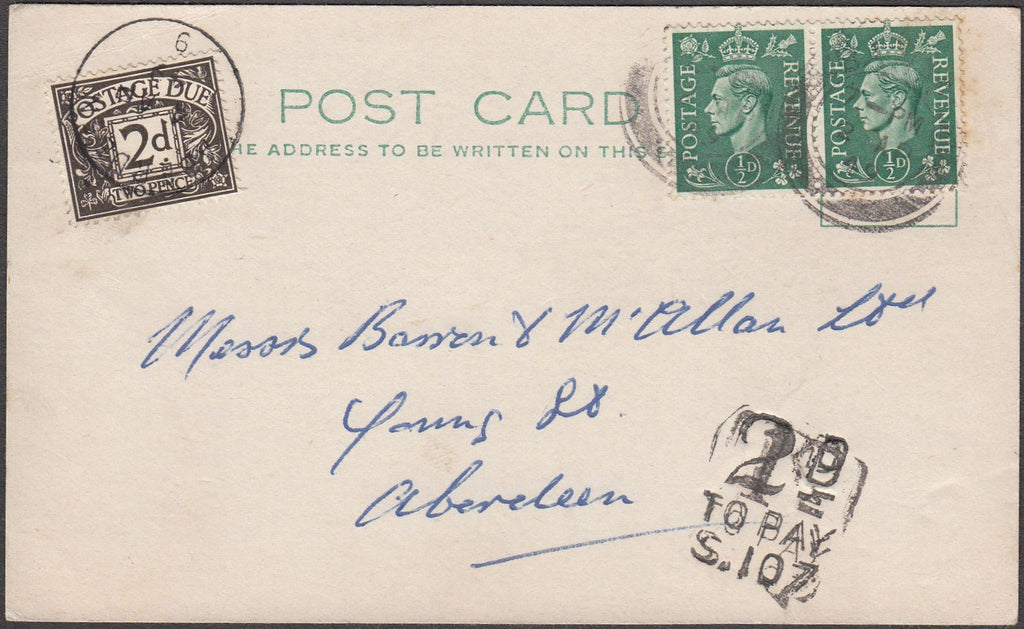 6
POSTAGE DUE
2d
TWO PENCE
POST CARD
HE ADDRESS TO BE WRITTEN ON THIS S
POSTAGE REVENUE
½D
POSTAGE REVENUE
½D
PM
Messrs Barron & McAllan Ltd
Young St.
Aberdeen
2D
TO PAY
S.107